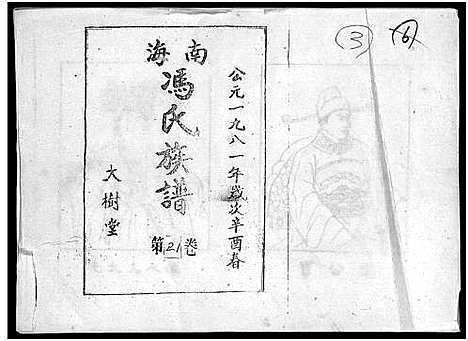 ③ ⑥
公元一九八一年歲次辛酉春
海南
馮氏族譜
第21卷
大樹堂